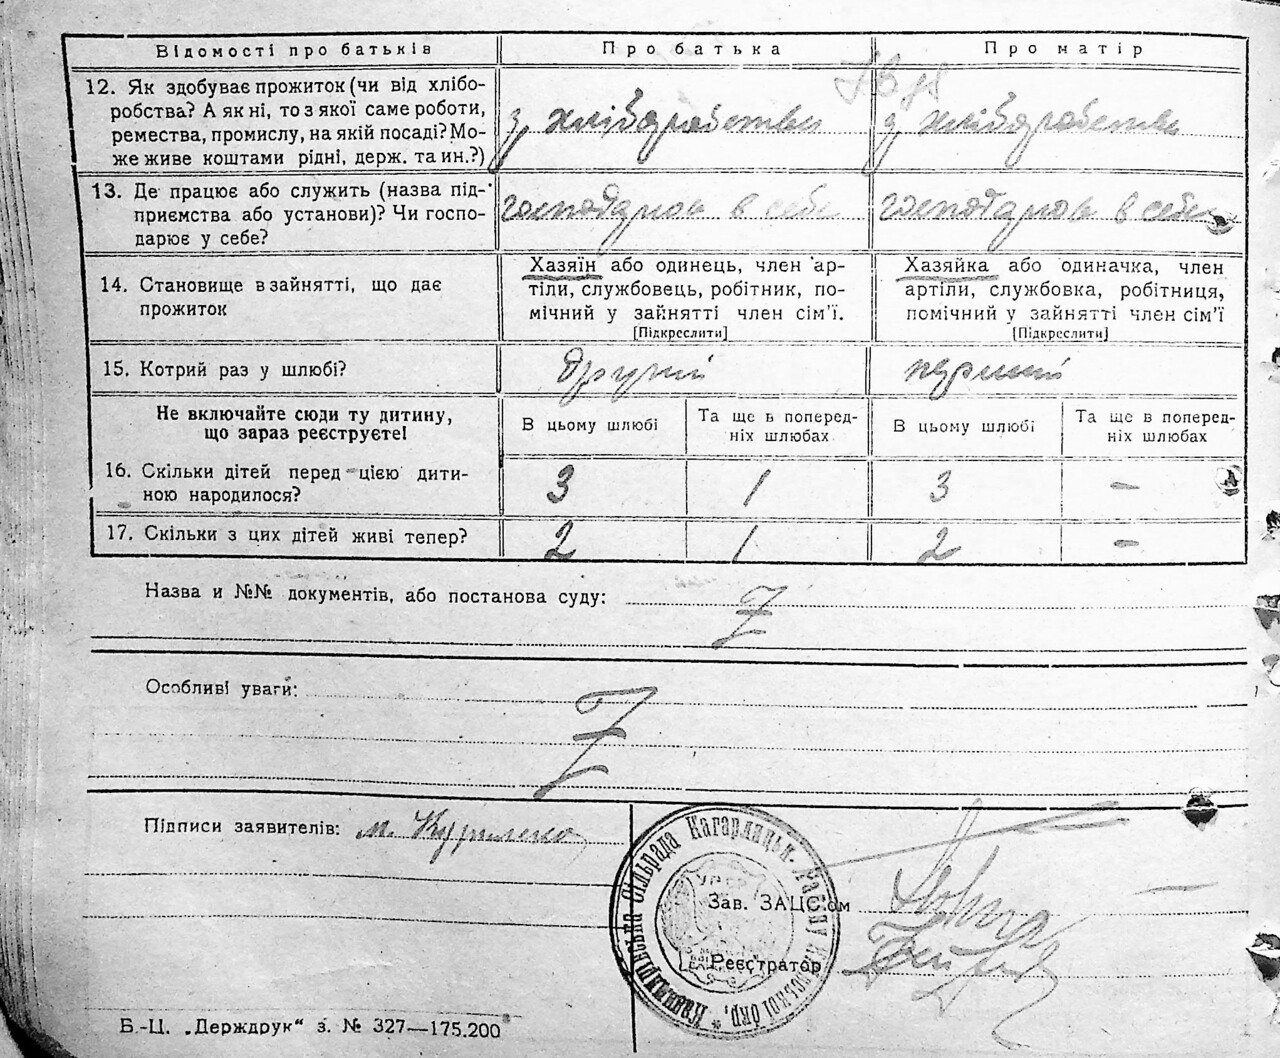 Відомості про батьків Про батька Про матір
12. Як здобуває прожиток (чи від хлібо-
робства? А як ні, то з якої саме роботи,
ремества, промислу, на якій посаді? Мо-
же живе коштами рідні, держ. та ин.?)
з хліборобства з хліборобства
13. Де працює або служить (назва під-
приємства або установи)? Чи госпо-
дарює у себе?
господарює в себе господарює в себе
14. Становище в зайнятті, що дає
прожиток
Хазяїн або одинець, член ар-
тіли, службовець, робітник, по-
мічний у зайнятті член сім'ї.
[Підкреслити]
Хазяйка або одиначка, член
артіли, службовка, робітниця,
помічний у зайнятті член сім'ї
[Підкреслити]
15. Котрий раз у шлюбі? другий перший
Не включайте сюди ту дитину,
що зараз реєструєте!
В цьому шлюбі
Та ще в поперед-
ніх шлюбах
В цьому шлюбі
Та ще в поперед-
ніх шлюбах
16. Скільки дітей перед цією дити-
ною народилося?
3 1 3 -
17. Скільки з цих дітей живі тепер? 2 1 2 -
Назва и №№ документів, або постанова суду:
Особливі уваги:
Підписи заявителів: М. Куриленко
Сільрада Кагарлицьк. Району
УРСР
Зав. ЗАЦС'ом
Реєстратор
Б.-Ц. „Держдрук" з. № 327—175.200